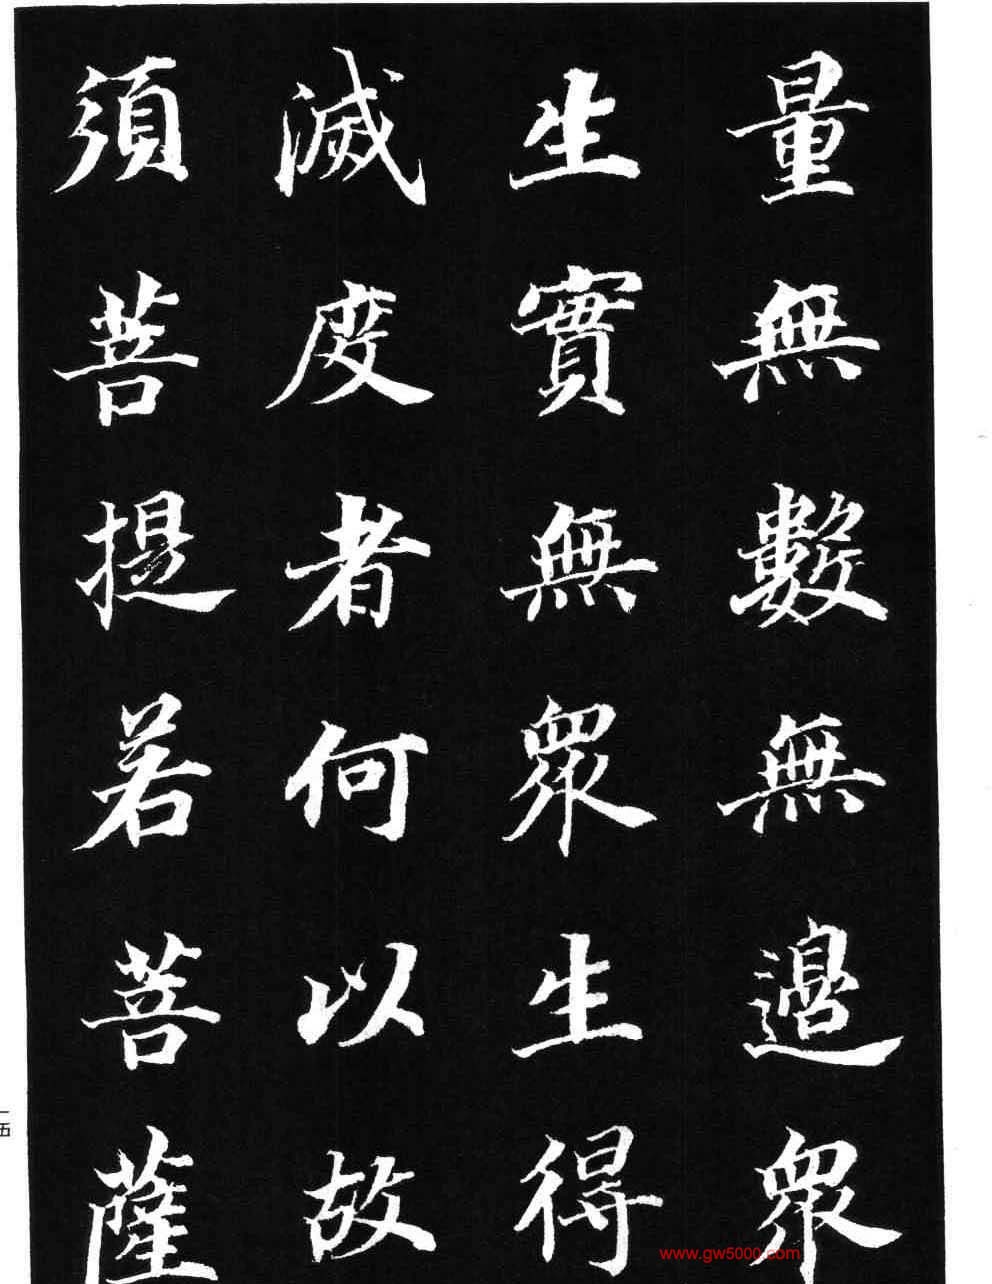 量無數無邊眾
生實無眾生得
滅度者何以故
須菩提若菩薩
一五
www.gw5000.com